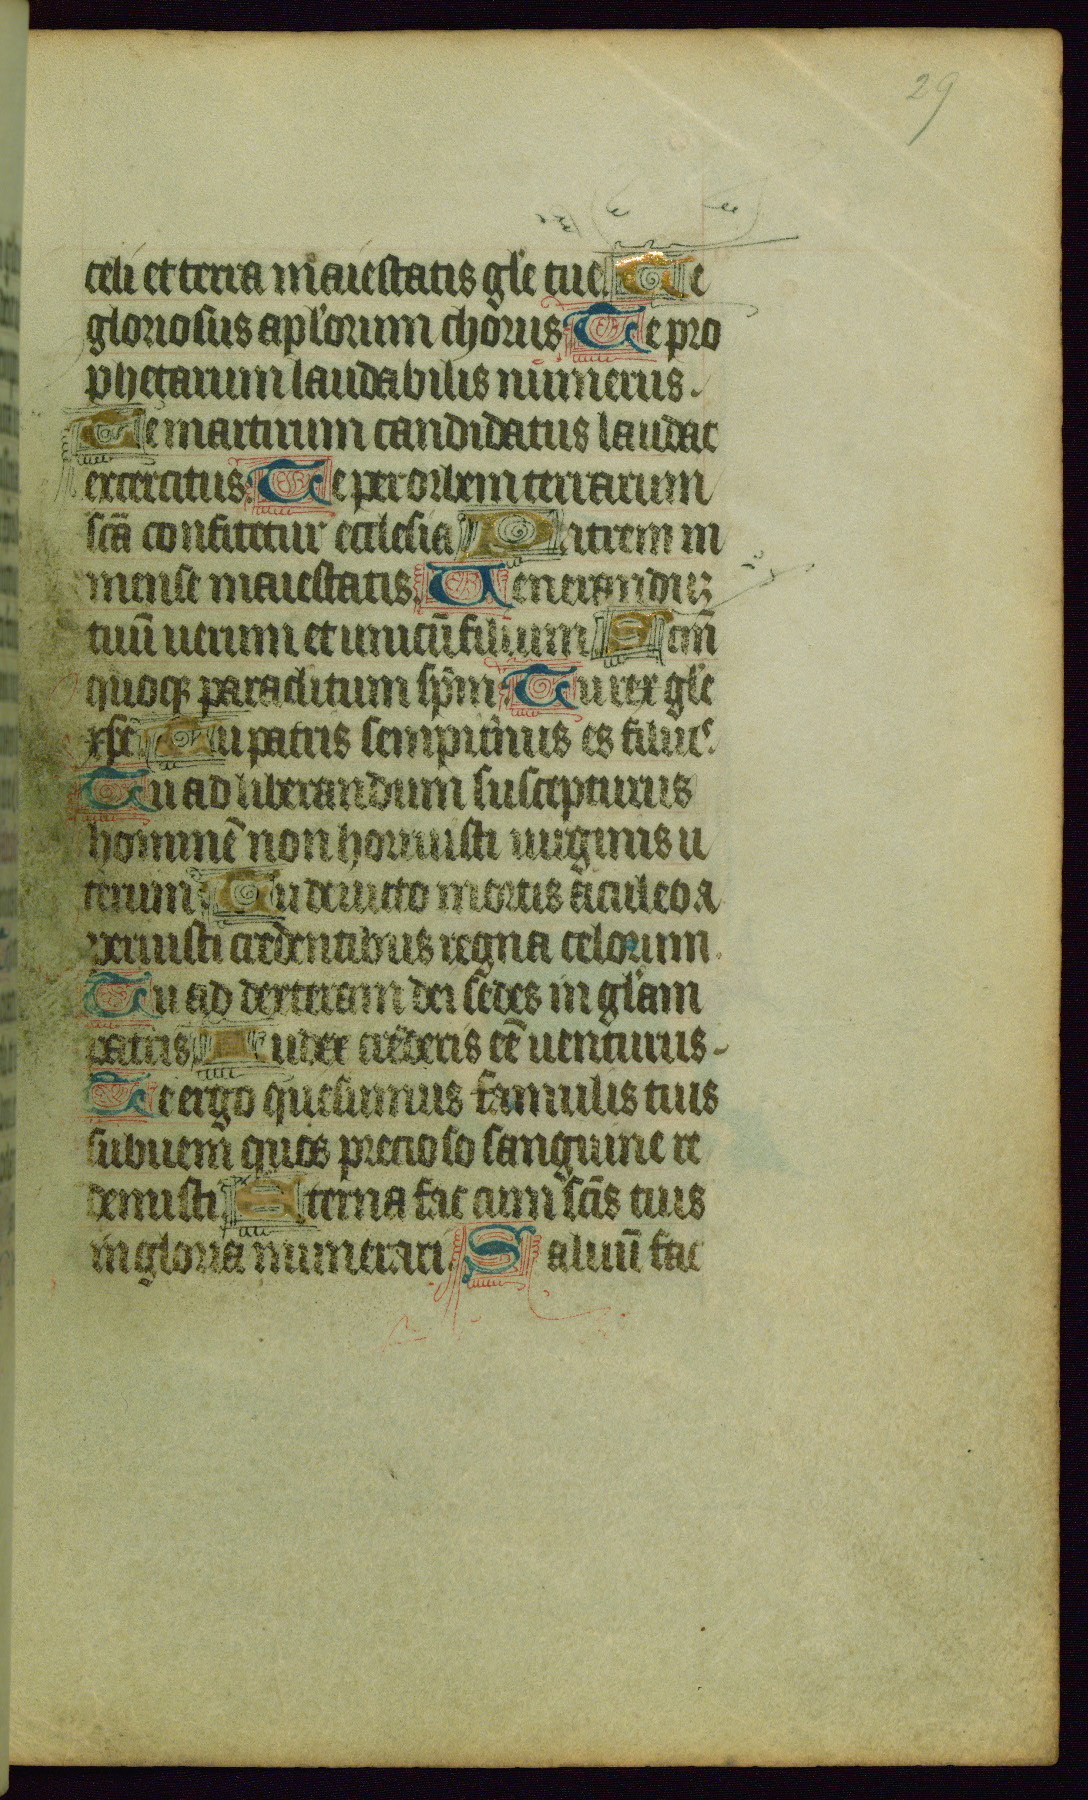 29
celi et terra maiestatis gl'e tue. Te
gloriosus apl'orum chorus. Te pro
phetarum laudabilis numerus.
Te martirum candidatus laudat
excercitus. Te per orbem terrarum
scā confitetur ecclesia. Patrem in
mense maiestatis. Uenerandūz
tuū uerum et unicū filium. Sctm̄
quoqꝫ paraclitum sp̄m. Tu rex gl'e
xp̄e. Tu patris sempit'nus es filius.
Tu ad liberandum suscepturus
hominē non horruisti uirginis u
terum. Tu deuicto mortis aculeo a
peruisti credentibus regna celorum.
Tu ad dexteram dei sedes in gl'am
patris. Iudex crederis eē uenturus.
Te ergo quesumus famulis tuis
subueni quos precioso sanguine re
demisti. Eterna fac cum scīs tuis
in gloria munerari. Saluū fac